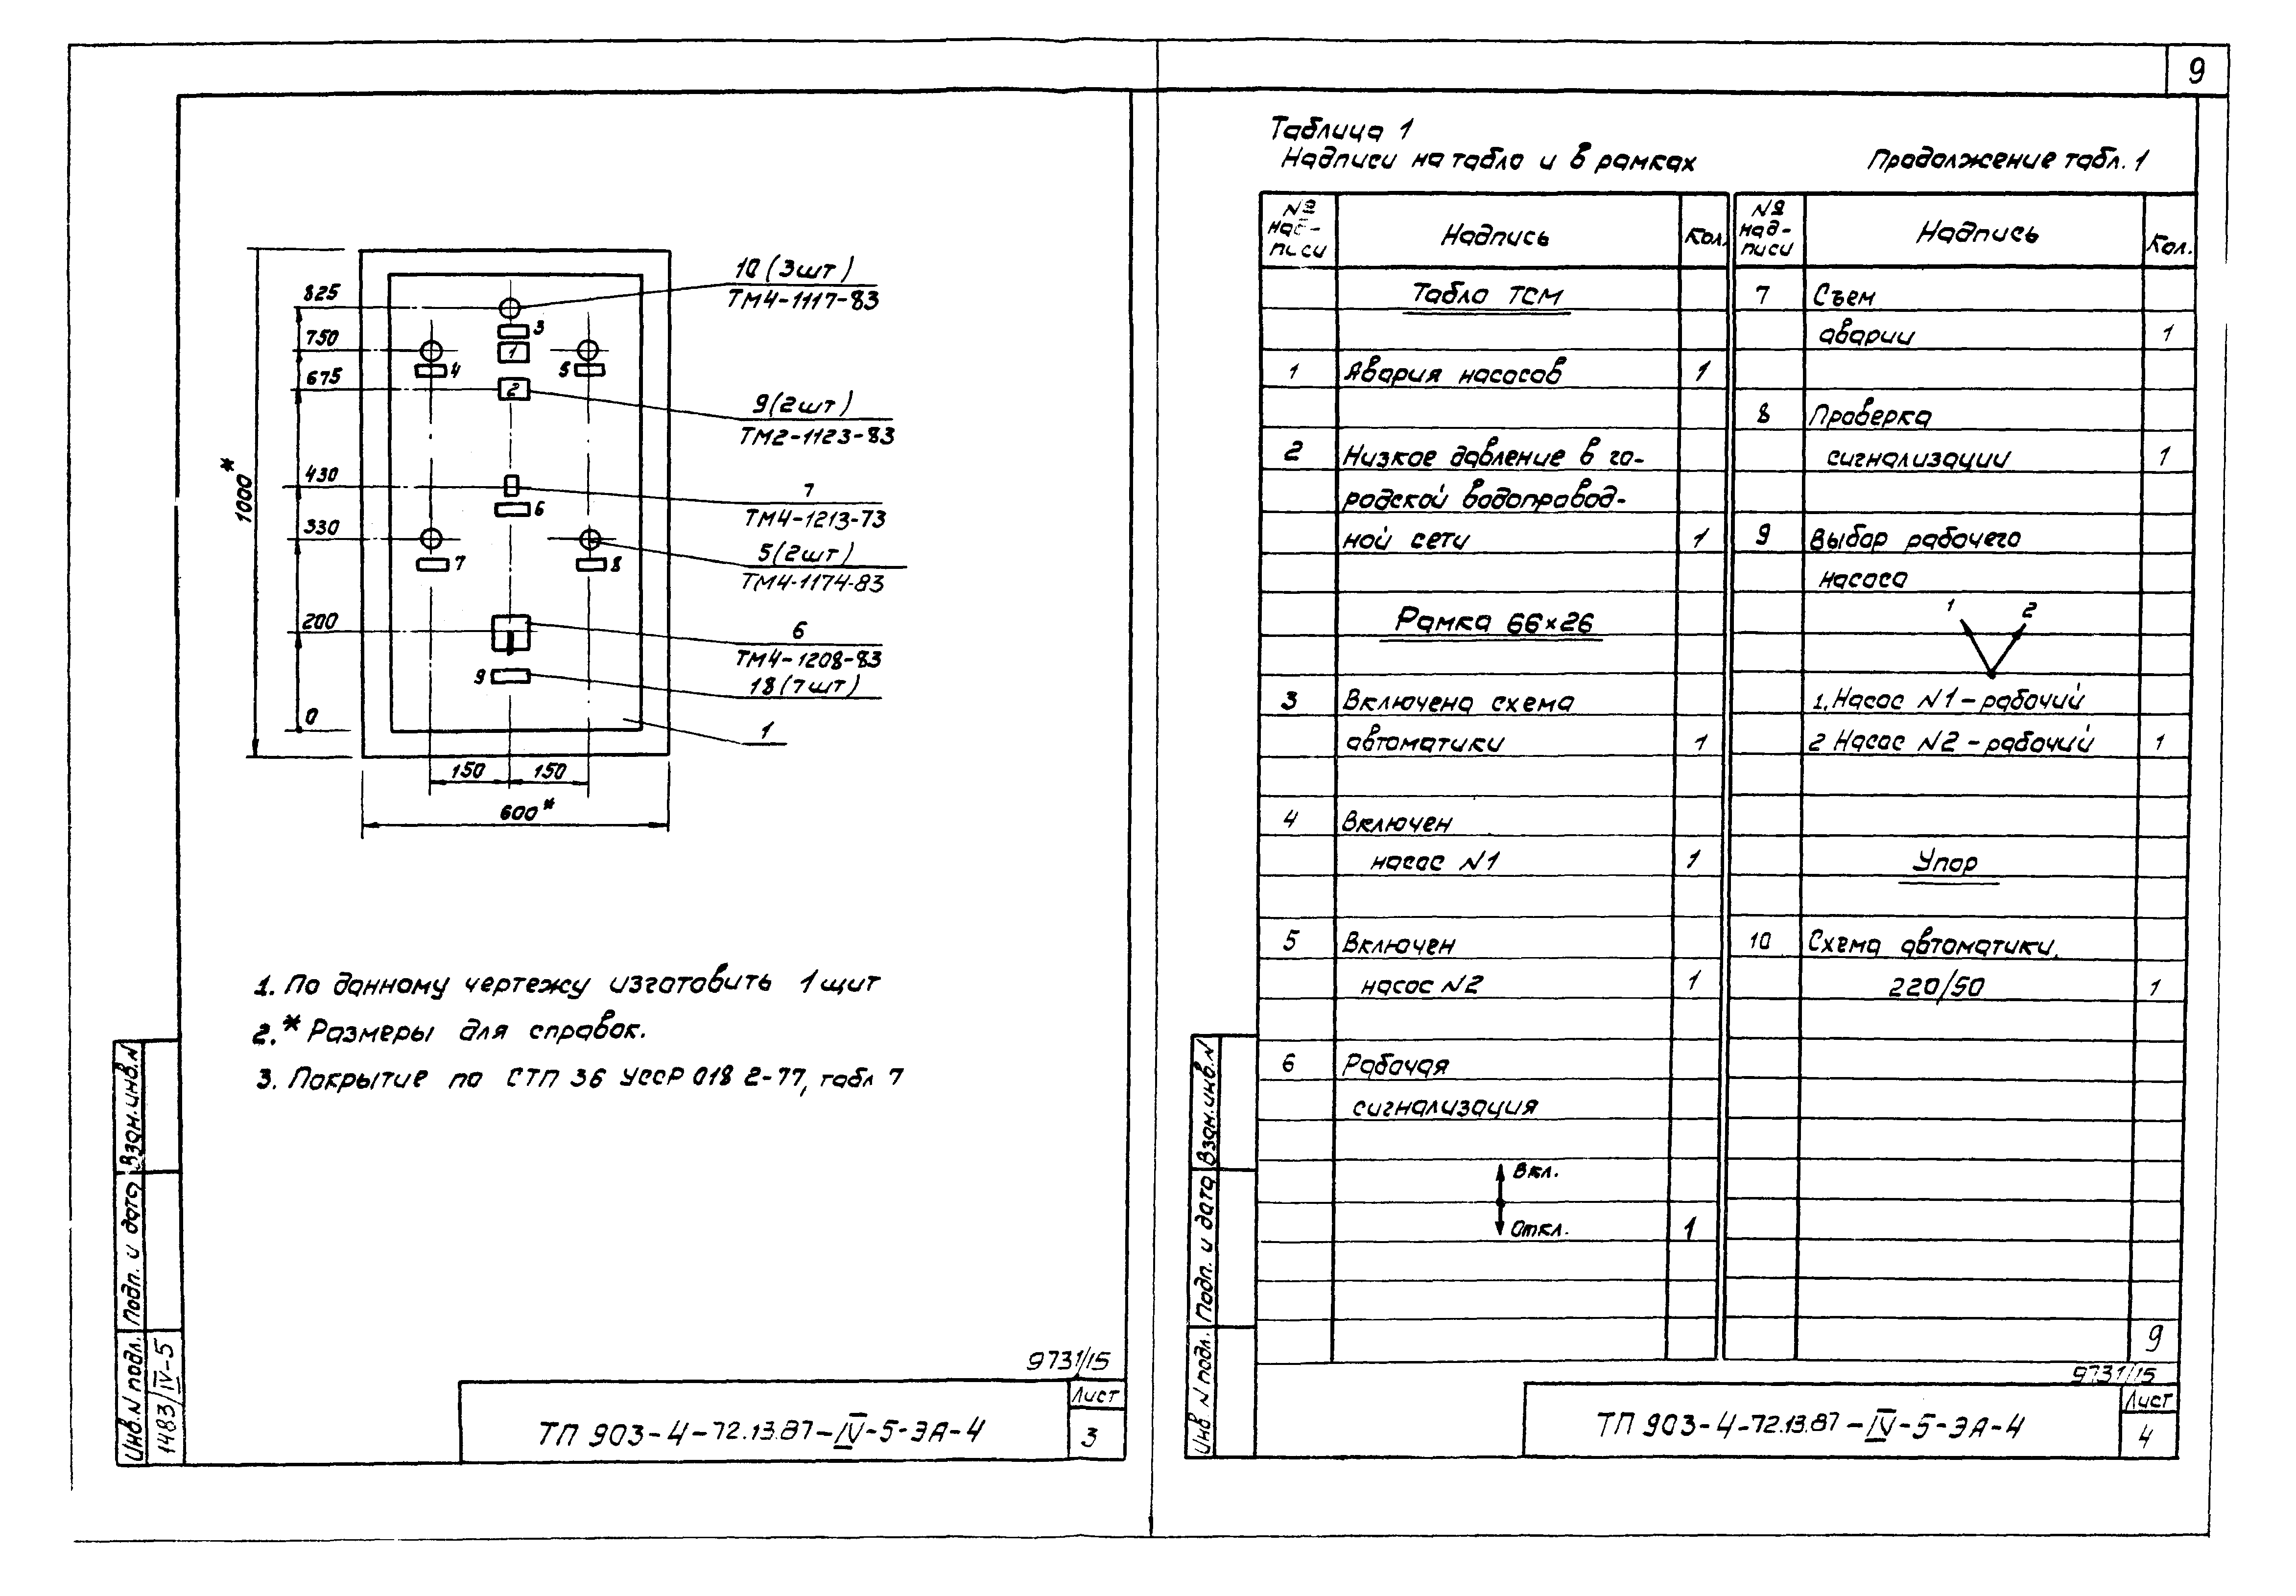 9
825
750
675
430
330
200
0
1000*
150
150
600*
3
1
4
5
2
6
7
8
9
10 (3шт)
ТМ4-1117-83
9 (2шт)
ТМ2-1123-83
7
ТМ4-1213-73
5 (2шт)
ТМ4-1174-83
6
ТМ4-1208-83
18 (7шт)
1
1. По данному чертежу изготовить 1 щит
2.* Размеры для справок.
3. Покрытие по СТП 36 УССР 018 2-77, табл 7
Взам.инв.N
Подп. и дата
Инв.N подл.
1483/IV-5
9731/15
ТП 903-4-72.13.87-IV-5-ЭА-4
Лист
3
Таблица 1
Надписи на табло и в рамках
№ над-писи Надпись Кол.
Табло ТСМ
1 Авария насосов 1
2 Низкое давление в го-
родской водопровод-
ной сети 1
Рамка 66×26
3 Включена схема
автоматики 1
4 Включен
насос N1 1
5 Включен
насос N2 1
6 Рабочая
сигнализация
Вкл.
Откл. 1
Продолжение табл. 1
№ над-писи Надпись Кол.
7 Съем
аварии 1
8 Проверка
сигнализации 1
9 Выбор рабочего
насоса
1 2
1. Насос N1 - рабочий
2 Насос N2 - рабочий 1
Упор
10 Схема автоматики.
220/50 1
9
Взам.инв.N
Подп. и дата
Инв N подл.
9731/15
ТП 903-4-72.13.87-IV-5-ЭА-4
Лист
4